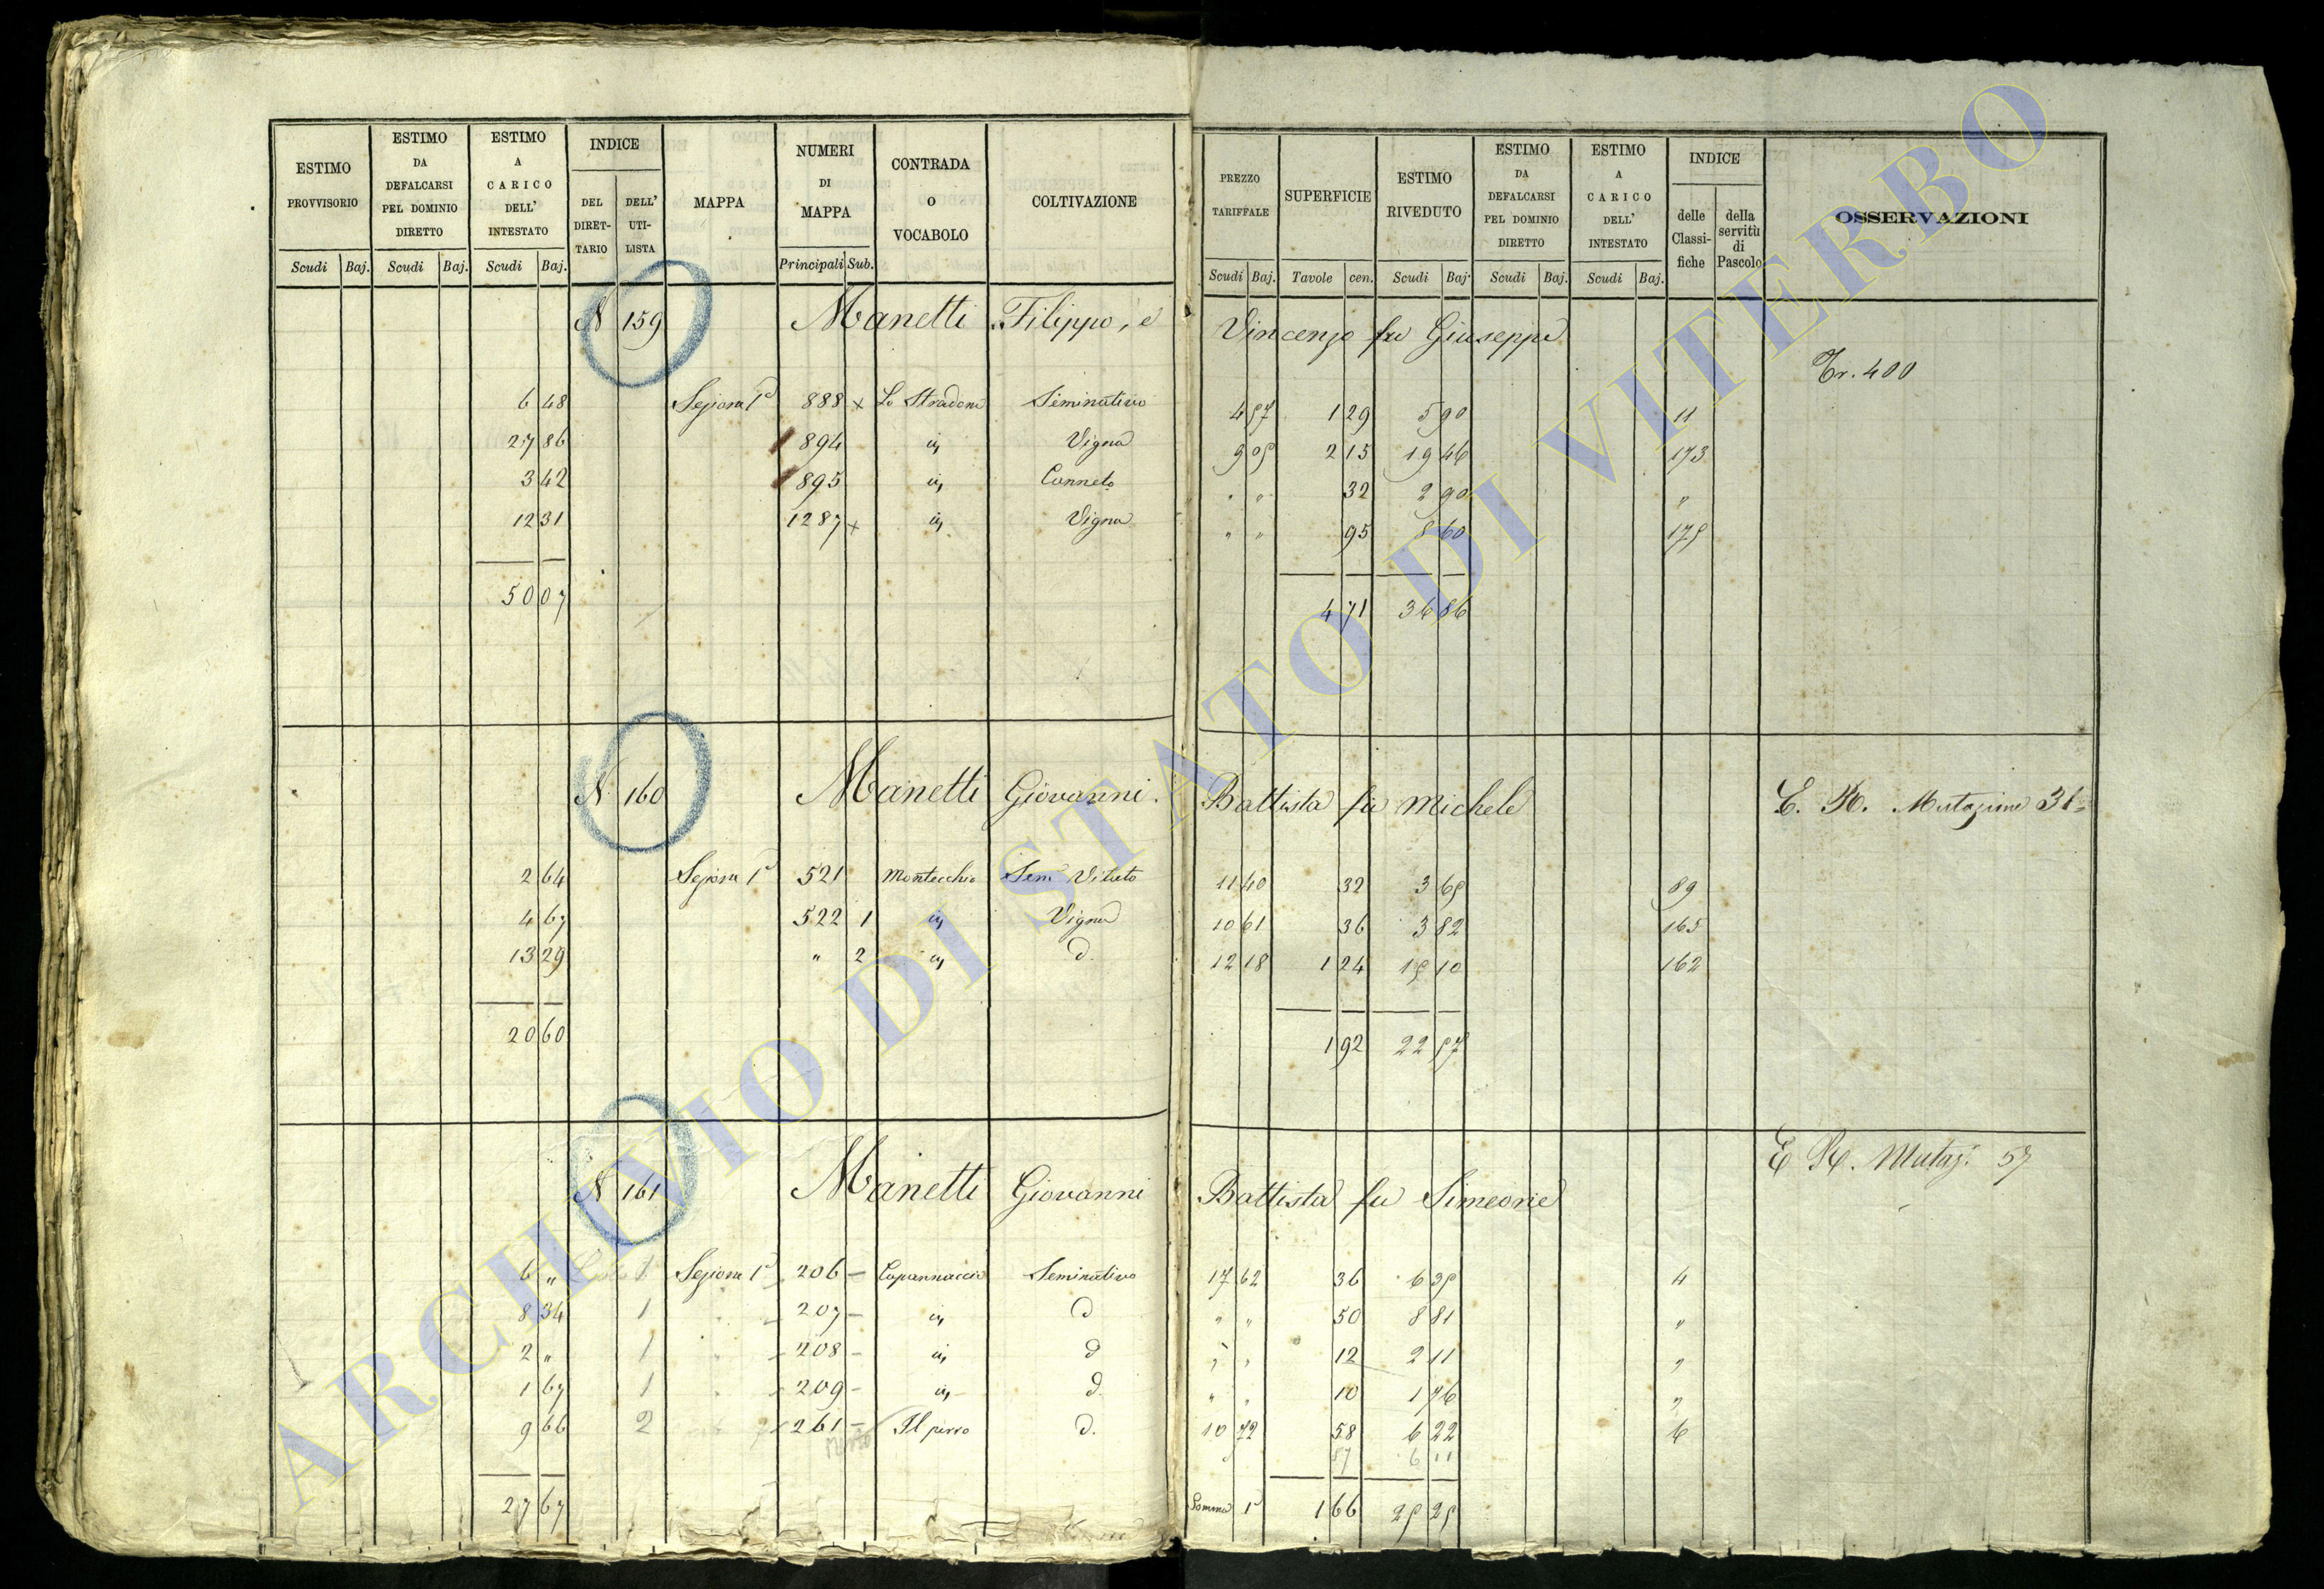 ESTIMO PROVVISORIO
ESTIMO DA DEFALCARSI PEL DOMINIO DIRETTO
ESTIMO A CARICO DELL' INTESTATO
INDICE
DEL DIRET-TARIO
DELL' UTI-LISTA
MAPPA
NUMERI DI MAPPA
CONTRADA O VOCABOLO
COLTIVAZIONE
PREZZO TARIFFALE
SUPERFICIE
ESTIMO RIVEDUTO
ESTIMO DA DEFALCARSI PEL DOMINIO DIRETTO
ESTIMO A CARICO DELL' INTESTATO
INDICE
delle Classi-fiche
della servitù di Pascolo
OSSERVAZIONI
Scudi Baj. Scudi Baj. Scudi Baj. Principali Sub. Scudi Baj. Tavole cen. Scudi Baj. Scudi Baj. Scudi Baj.
N 159 Manetti Filippo, e Vincenzo fu Giuseppe
Tr. 400
6 48 Sezione 1ª 888 x Lo Stradone Seminativo 4 57 1 29 5 90 11
27 86 894 id Vigna 9 05 2 15 19 46 173
3 42 895 id Canneto " " 32 2 90 "
12 31 1287 x id Vigna " " 95 8 60 175
50 07 4 71 36 86
N 160 Manetti Giovanni Battista fu Michele E. R. Mutazione 31
2 64 Sezione 1ª 521 Montecchio Sem Vitato 11 40 32 3 65 89
4 67 522 1 id Vigna 10 61 36 3 82 165
13 29 " 2 id d. 12 18 1 24 15 10 162
20 60 1 92 22 57
E R. Mutaz. 57
N 161 Manetti Giovanni Battista fu Simeone
6 " 1 Sezione 1ª 206 - Capannaccia Seminativo 17 62 36 6 35 4
8 34 1 207 - id d " " 50 8 81 "
2 " 1 208 - id d " " 12 2 11 "
1 67 1 209 - id d. " " 10 1 76 "
9 66 2 261 - Il perro d. 10 72 58 6 22 6
87 6 11
27 67 Somma 1ª 1 66 25 25
ARCHIVIO DI STATO DI VITERBO